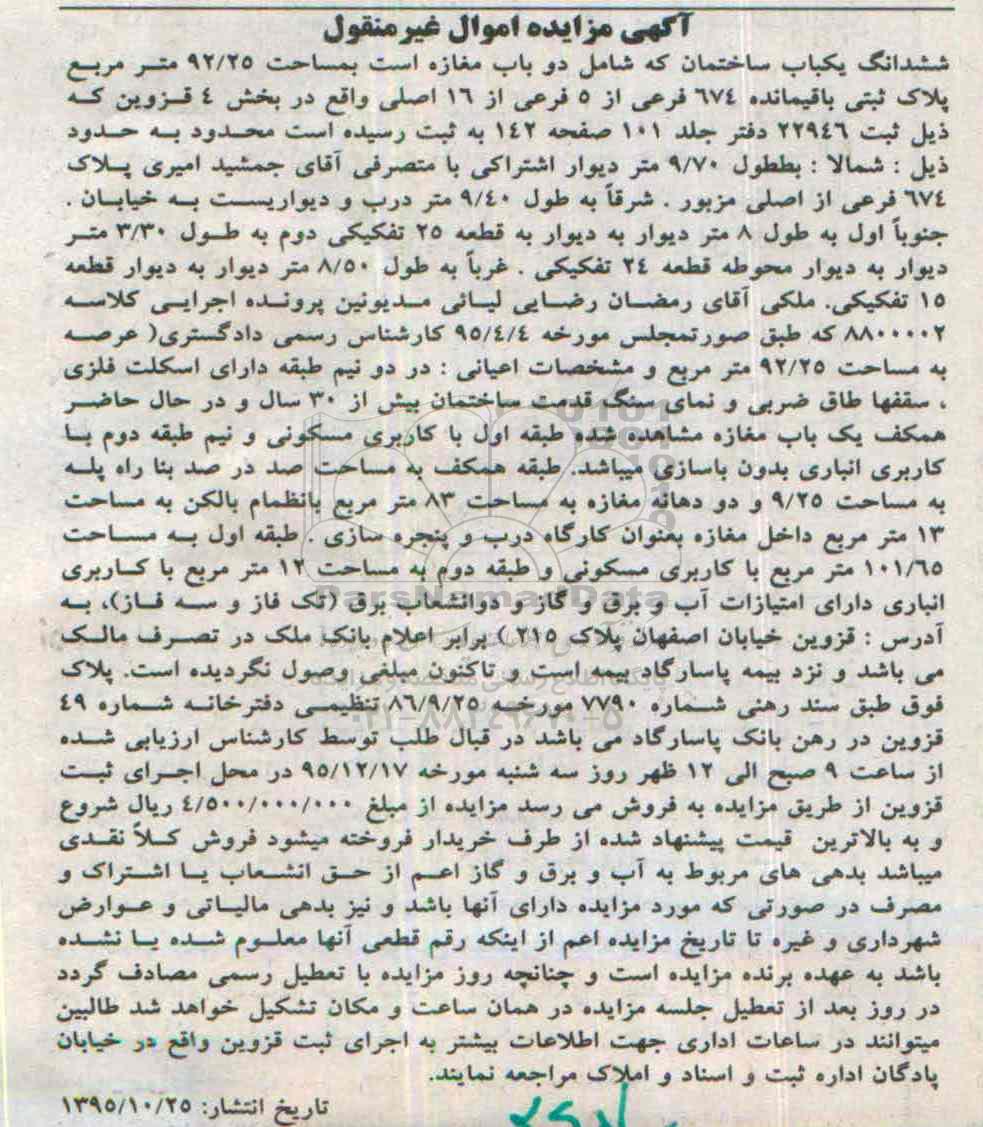 آگهی مزایده اموال غیرمنقول
ششدانگ یکباب ساختمان که شامل دو باب مغازه است بمساحت ۹۲/۲۵ متر مربع
پلاک ثبتی باقیمانده ۶۷۴ فرعی از ۵ فرعی از ۱۶ اصلی واقع در بخش ۴ قزوین که
ذیل ثبت ۲۲۹۴۶ دفتر جلد ۱۰۱ صفحه ۱۴۲ به ثبت رسیده است محدود به حدود
ذیل : شمالا : بططول ۹/۷۰ متر دیوار اشتراکی با متصرفی آقای جمشید امیری پلاک
۶۷۴ فرعی از اصلی مزبور . شرقاً به طول ۹/۴۰ متر درب و دیواریست به خیابان .
جنوباً اول به طول ۸ متر دیوار به دیوار به قطعه ۲۵ تفکیکی دوم به طول ۳/۳۰ متر
دیوار به دیوار محوطه قطعه ۲۴ تفکیکی . غرباً به طول ۸/۵۰ متر دیوار به دیوار قطعه
۱۵ تفکیکی. ملکی آقای رمضان رضایی لیائی مدیونین پرونده اجرایی کلاسه
۸۸۰۰۰۰۲ که طبق صورتمجلس مورخه ۹۵/۴/۴ کارشناس رسمی دادگستری( عرصه
به مساحت ۹۲/۲۵ متر مربع و مشخصات اعیانی : در دو نیم طبقه دارای اسکلت فلزی
، سقفها طاق ضربی و نمای سنگ قدمت ساختمان بیش از ۳۰ سال و در حال حاضر
همکف یک باب مغازه مشاهده شده طبقه اول با کاربری مسکونی و نیم طبقه دوم با
کاربری انباری بدون باسازی میباشد. طبقه همکف به مساحت صد در صد بنا راه پله
به مساحت ۹/۲۵ و دو دهانه مغازه به مساحت ۸۳ متر مربع بانظمام بالکن به مساحت
۱۳ متر مربع داخل مغازه بعنوان کارگاه درب و پنجره سازی . طبقه اول به مساحت
۱۰۱/۶۵ متر مربع با کاربری مسکونی و طبقه دوم به مساحت ۱۲ متر مربع با کاربری
انباری دارای امتیازات آب و برق و گاز و دوانشعاب برق (تک فاز و سه فاز)، به
آدرس : قزوین خیابان اصفهان پلاک ۲۱۵ ) برابر اعلام بانک ملک در تصرف مالک
می باشد و نزد بیمه پاسارگاد بیمه است و تاکنون مبلغی وصول نگردیده است. پلاک
فوق طبق سند رهنی شماره ۷۷۹۰ مورخه ۸۶/۹/۲۵ تنظیمی دفترخانه شماره ۴۹
قزوین در رهن بانک پاسارگاد می باشد در قبال طلب توسط کارشناس ارزیابی شده
از ساعت ۹ صبح الی ۱۲ ظهر روز سه شنبه مورخه ۹۵/۱۲/۱۷ در محل اجرای ثبت
قزوین از طریق مزایده به فروش می رسد مزایده از مبلغ ۴/۵۰۰/۰۰۰/۰۰۰ ریال شروع
و به بالاترین قیمت پیشنهاد شده از طرف خریدار فروخته میشود فروش کلاً نقدی
میباشد بدهی های مربوط به آب و برق و گاز اعم از حق انشعاب یا اشتراک و
مصرف در صورتی که مورد مزایده دارای آنها باشد و نیز بدهی مالیاتی و عوارض
شهرداری و غیره تا تاریخ مزایده اعم از اینکه رقم قطعی آنها معلوم شده یا نشده
باشد به عهده برنده مزایده است و چنانچه روز مزایده با تعطیل رسمی مصادف گردد
در روز بعد از تعطیل جلسه مزایده در همان ساعت و مکان تشکیل خواهد شد طالبین
میتوانند در ساعات اداری جهت اطلاعات بیشتر به اجرای ثبت قزوین واقع در خیابان
پادگان اداره ثبت و اسناد و املاک مراجعه نمایند.
تاریخ انتشار: ۱۳۹۵/۱۰/۲۵
ParsNamadData
۰۲۱-۸۸۳۴۹۶۷۰-۵